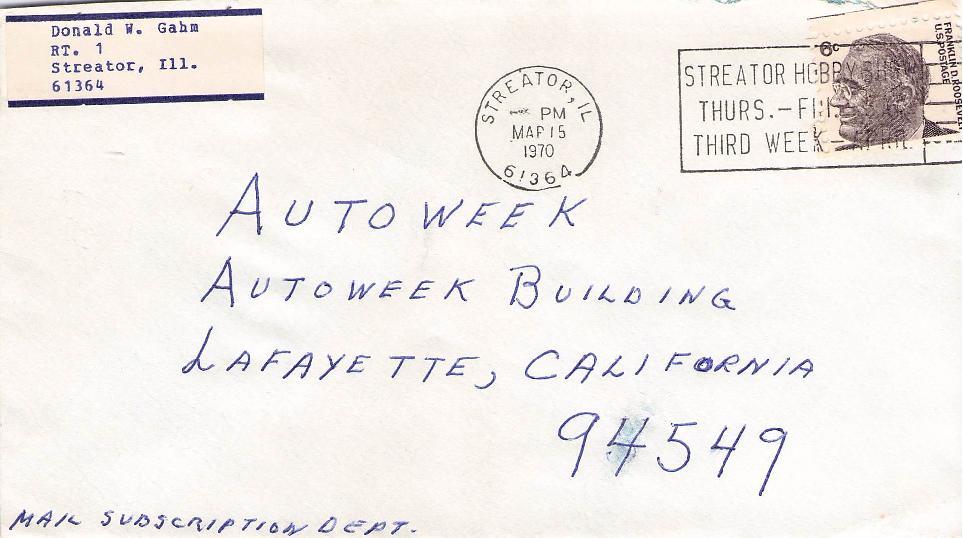 Donald W. Gahm
RT. 1
Streator, Ill.
61364
STREATOR, IL
PM
MAR 15
1970
61364
STREATOR HOBBY
THURS. - FRI.
THIRD WEEK - APRIL
6c
FRANKLIN D. ROOSEVELT
U.S. POSTAGE
AUTOWEEK
AUTOWEEK BUILDING
LAFAYETTE, CALIFORNIA
94549
MAIL SUBSCRIPTION DEPT.